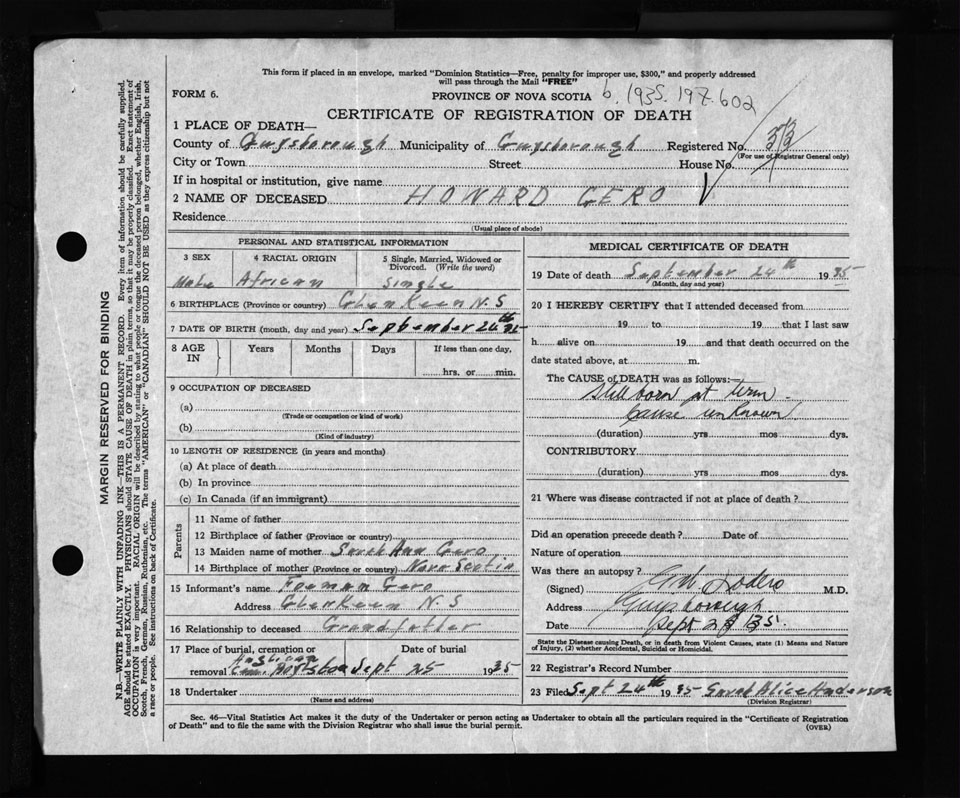 This form if placed in an envelope, marked "Dominion Statistics—Free, penalty for improper use, $300," and properly addressed
will pass through the Mail "FREE"
FORM 6.
PROVINCE OF NOVA SCOTIA b. 1935. 197. 602
CERTIFICATE OF REGISTRATION OF DEATH
1 PLACE OF DEATH—
County of Guysborough Municipality of Guysborough Registered No. 33
(For use of Registrar General only)
City or Town Street House No.
If in hospital or institution, give name
2 NAME OF DECEASED HOWARD GERO
Residence
(Usual place of abode)
PERSONAL AND STATISTICAL INFORMATION
3 SEX 4 RACIAL ORIGIN 5 Single, Married, Widowed or Divorced. (Write the word)
Male African Single
6 BIRTHPLACE (Province or country) Glenkeen N.S
7 DATE OF BIRTH (month, day and year) September 24th 35
8 AGE IN Years Months Days If less than one day,
hrs. or min.
9 OCCUPATION OF DECEASED
(a)
(Trade or occupation or kind of work)
(b)
(Kind of industry)
10 LENGTH OF RESIDENCE (in years and months)
(a) At place of death
(b) In province
(c) In Canada (if an immigrant)
Parents
11 Name of father
12 Birthplace of father (Province or country)
13 Maiden name of mother Sarah Ann Gero
14 Birthplace of mother (Province or country) Nova Scotia
15 Informant's name Freman Gero
Address Glenkeen N.S
16 Relationship to deceased Grandfather
17 Place of burial, cremation or removal Date of burial
Anglican
Cem. Sept 25 1935
18 Undertaker
(Name and address)
MEDICAL CERTIFICATE OF DEATH
19 Date of death September 24th 1935
(Month, day and year)
20 I HEREBY CERTIFY that I attended deceased from
19 to 19 that I last saw
h alive on 19 and that death occurred on the
date stated above, at m.
The CAUSE of DEATH was as follows:—
Still born at term.
Cause unknown
(duration) yrs mos dys.
CONTRIBUTORY
(duration) yrs mos dys.
21 Where was disease contracted if not at place of death?
Did an operation precede death? Date of
Nature of operation
Was there an autopsy?
(Signed) M.D.
Address Guysborough
Date Sept 28 35
State the Disease causing Death, or in death from Violent Causes, state (1) Means and Nature
of Injury, (2) whether Accidental, Suicidal or Homicidal.
22 Registrar's Record Number
23 Filed Sept 24th 1935 Sarah Alice Anderson
(Division Registrar)
Sec. 46—Vital Statistics Act makes it the duty of the Undertaker or person acting as Undertaker to obtain all the particulars required in the "Certificate of Registration
of Death" and to file the same with the Division Registrar who shall issue the burial permit.
(OVER)
MARGIN RESERVED FOR BINDING
N.B.—WRITE PLAINLY WITH UNFADING INK—THIS IS A PERMANENT RECORD. Every item of information should be carefully supplied.
AGE should be stated EXACTLY. PHYSICIANS should STATE CAUSE OF DEATH in plain terms, so that it may be properly classified. Exact statement of
OCCUPATION is very important. RACIAL ORIGIN will be described by stating to what people or tongue the deceased person belonged, whether English, Irish,
Scotch, French, German, Russian, Ruthenian, etc. The terms "AMERICAN" or "CANADIAN" SHOULD NOT BE USED as they express citizenship but not
a race or people. See instructions on back of Certificate.